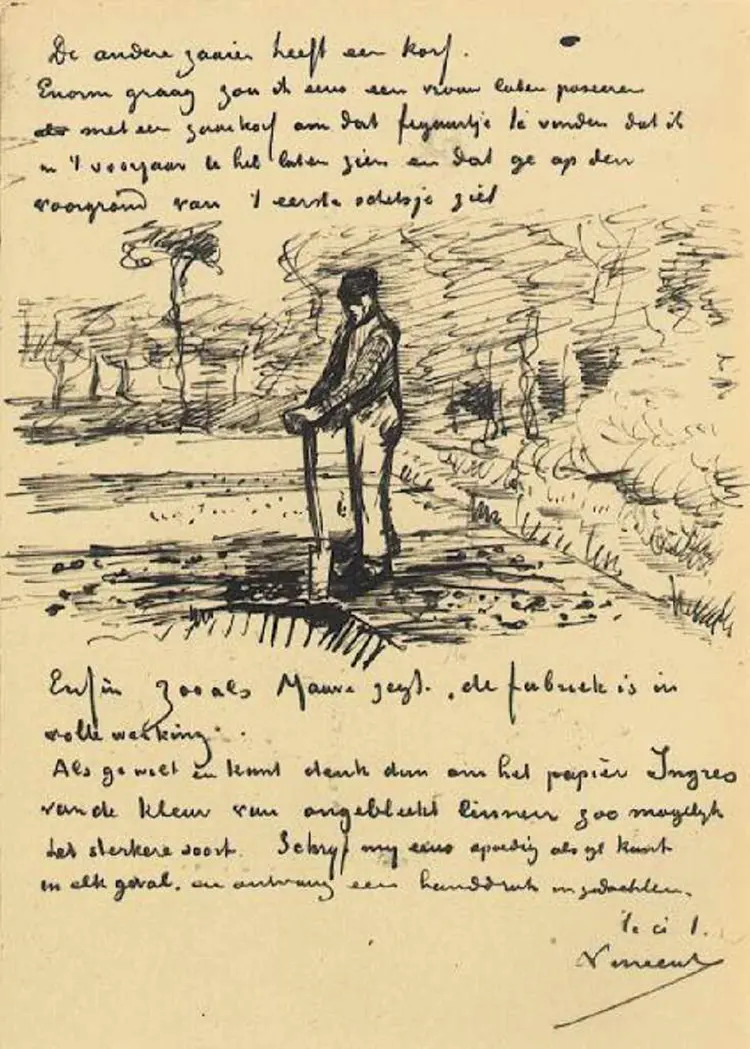 De andere zaaier heeft een korf.
Enorm graag zou ik eens een vrouw laten poseeren
met een zaaikorf om dat figuurtje te vinden dat ik
u 't voorjaar al heb laten zien en dat ge op den
voorgrond van 't eerste schetsje ziet
Enfin zooals Mauve zegt. „de fabriek is in
volle werking.
Als ge wilt en kunt denk dan om het papier Ingres
van de kleur van ongebleekt linnen zoo mogelijk
het sterkere soort. Schryf my eens spoedig als gy kunt
in elk geval, en ontvang een handdruk in gedachten.
t. à t.
Vincent